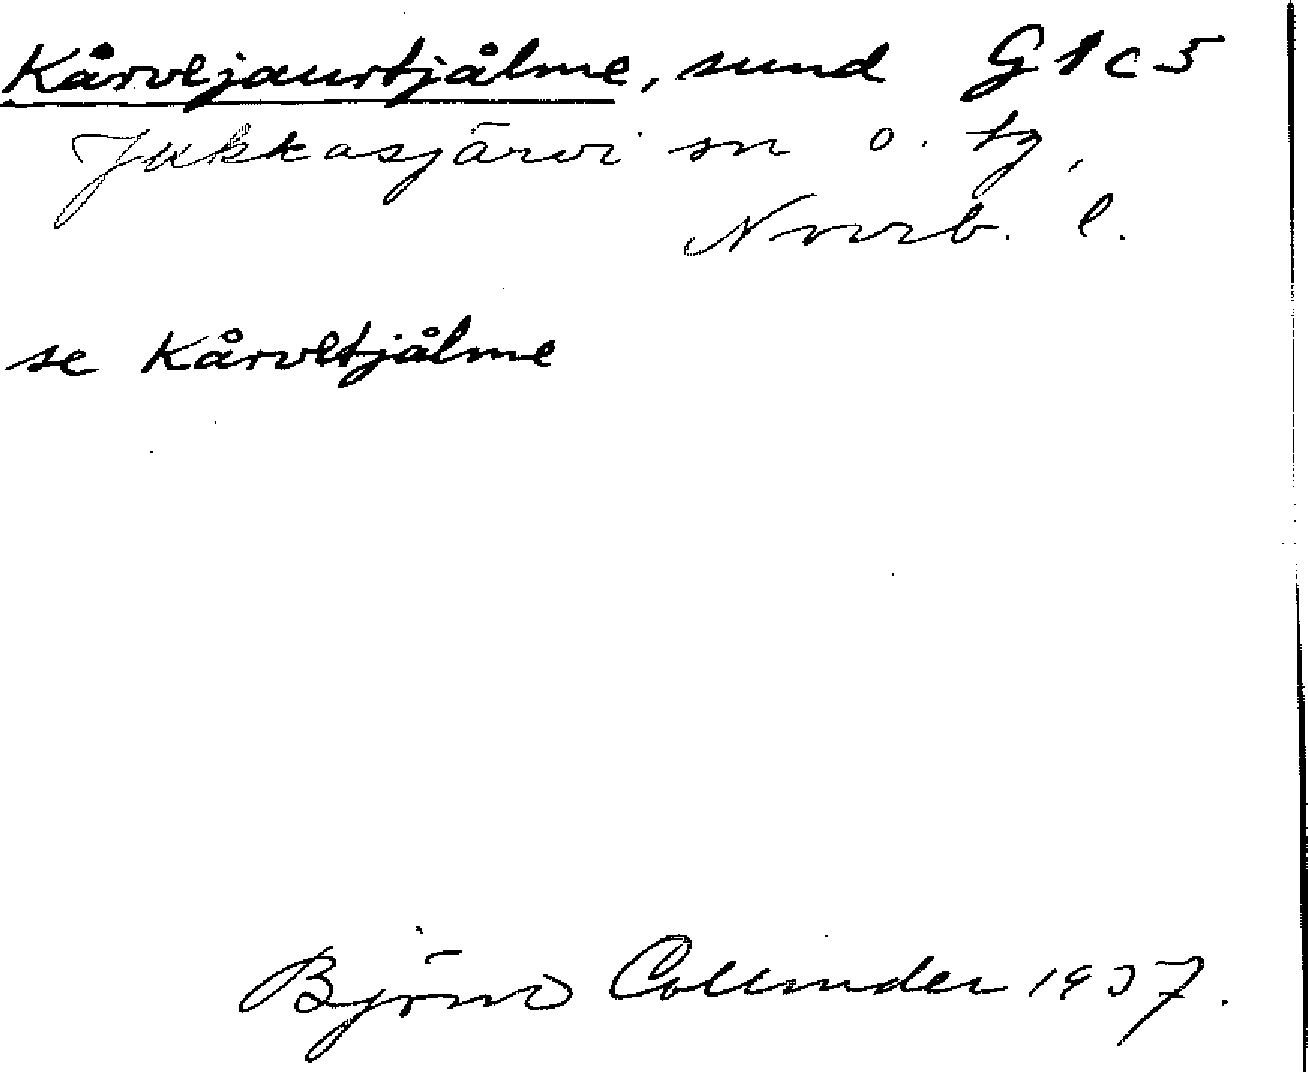 Kårvejaurtjålme, sund G1c5
Jukkasjärvi sn o. tg,
Norrb. l.
se Kårvetjålme
Björn Collinder 1937.